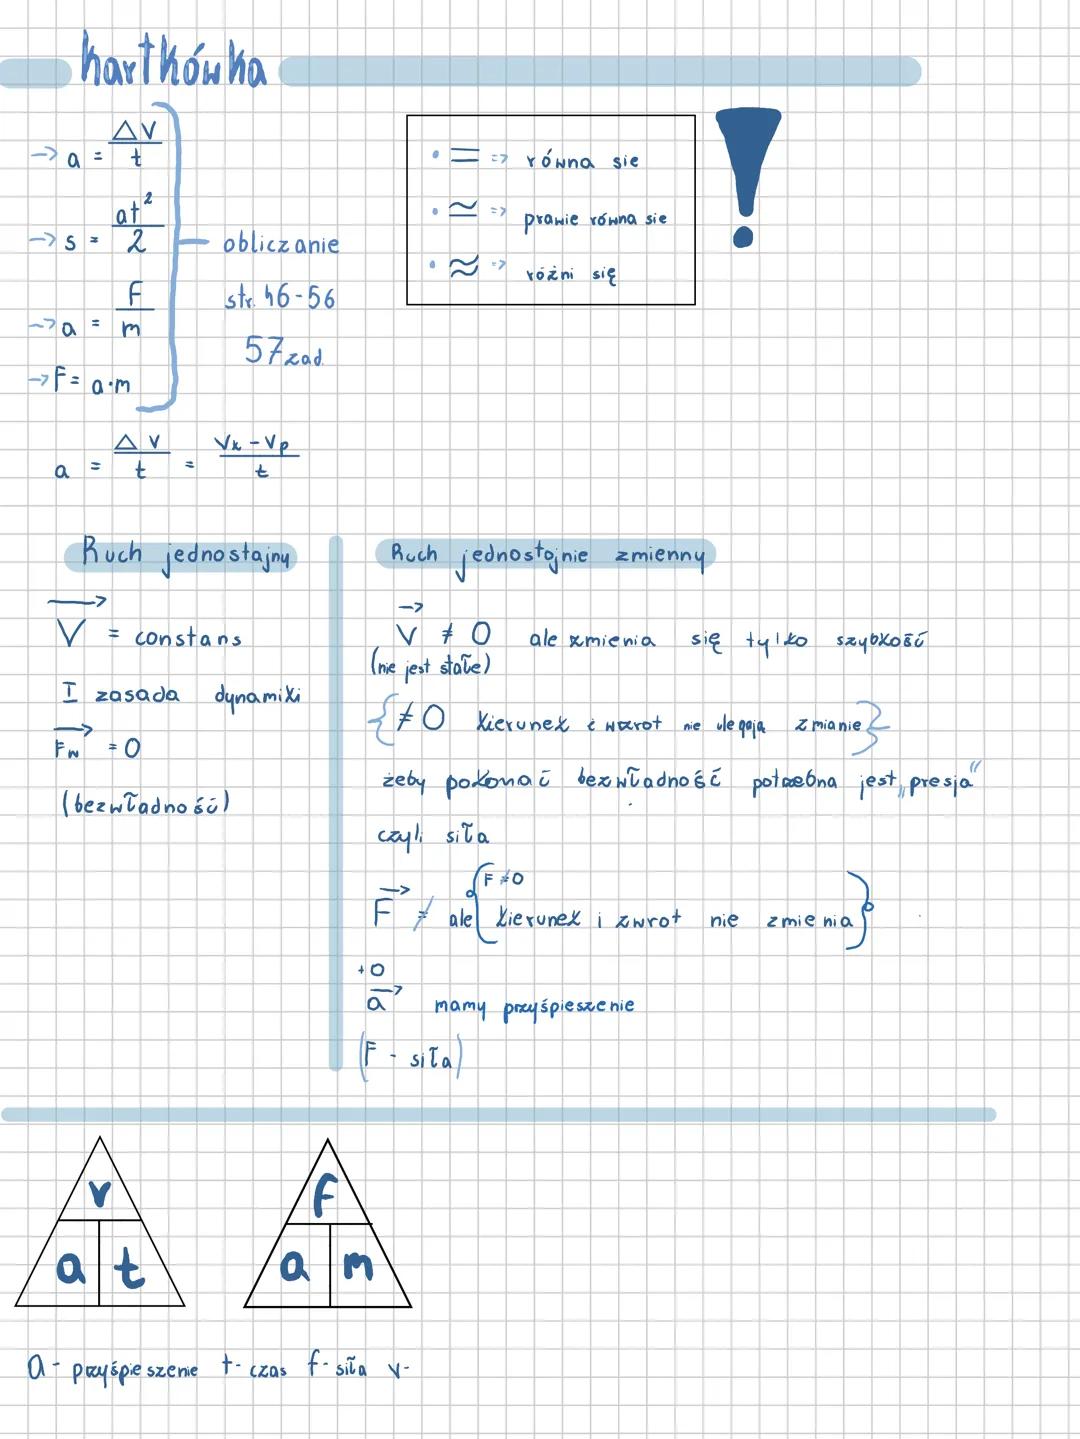 kartkówka
→ a = ΔV/t
→ s = at²/2
→ a = F/m
→ F = a·m
obliczanie
str. 46-56
57 zad.
• = => równa sie
• ≃ => prawie równa sie
• ≈ => różni się
!
a = ΔV/t = Vk - Vp/t
Ruch jednostajny
V = constans
I zasada dynamiki
Fw = 0
(bezwładność)
Ruch jednostajnie zmienny
V ≠ 0 ale zmienia się tylko szybkość
(nie jest stałe)
{≠ 0 kierunek i wzrot nie ulegają zmianie}
żeby pokonać bezwładność potrzebna jest „presja"
czyli siła
F ≠ 0
F ≠ ale kierunek i zwrot nie zmienia
+0
a mamy przyśpieszenie
(F - siła)
v
a t
F
a m
a - przyśpieszenie t - czas f - siła v -